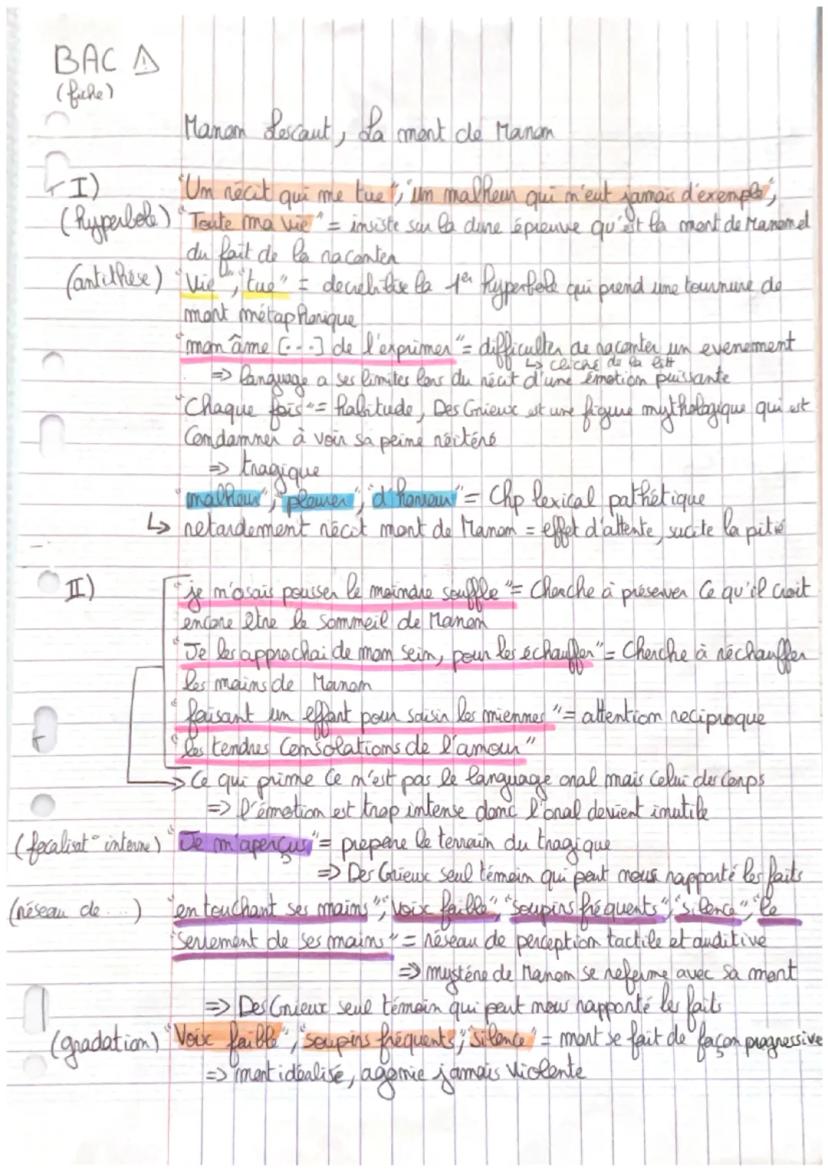 BAC ⚠
(fiche)
Manon Lescaut, La mort de Manon
I) "Un récit qui me tue", "un malheur qui n'eut jamais d'exemple",
(hyperbole) "Toute ma vie" = insiste sur la dure épreuve qu'est la mort de Manon et
du fait de la raconter
(antithèse) "Vie", "tue" = decrebilise la 1er hyperbole qui prend une tournure de
mort métaphorique
"mon âme [...] de l'exprimer" = difficulter de raconter un evenement
↳ cliché de la litt
=> language a ses limites lors du récit d'une émotion puissante
"Chaque fois" = habitude, Des Grieux est une figure mythologique qui est
Condamner à voir sa peine réitéré
=> tragique
"malheur", "pleurer", "d'horreur" = Chp lexical pathétique
↳ retardement récit mort de Manon = effet d'attente, sucite la pitié
II) "je n'osais pousser le moindre souffle" = Cherche à préserver Ce qu'il croit
encore être le sommeil de Manon
"Je les approchai de mon sein, pour les échauffer" = Cherche à réchauffer
les mains de Manon
"faisant un effort pour saisir les miennes" = attention reciproque
"les tendres Consolations de l'amour"
→ Ce qui prime Ce n'est pas le language oral mais Celui des Corps
=> l'émotion est trop intense donc l'oral devient inutile
(focalisat° interne) "Je m'aperçus" = prépare le terrain du tragique
=> Des Grieux seul témoin qui peut nous rapporté les faits
(réseau de ...) "en touchant ses mains", "Voix faible", "soupirs fréquents", "silence", "le
serrement de ses mains" = réseau de perception tactile et auditive
=> mystère de Manon se referme avec sa mort
=> Des Grieux seul témoin qui peut nous rapporté les faits
(gradation) "Voix faible", "soupirs fréquents", "silence" = mort se fait de façon progressive
=> mort idéalisé, agonie jamais violente